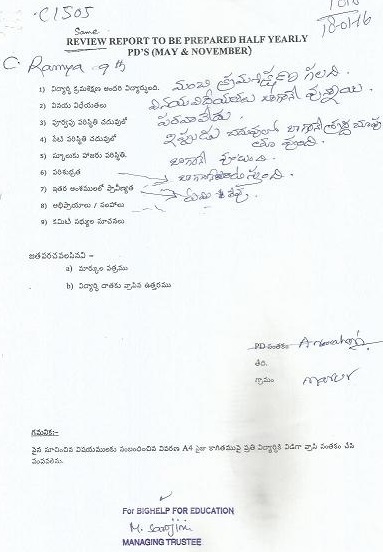 C1505
18-01-16
Same
REVIEW REPORT TO BE PREPARED HALF YEARLY
PD'S (MAY & NOVEMBER)
C. Ramya 9th
1) విద్యార్థి క్రమశిక్షణ అందరి విద్యార్థులది. మంచి క్రమశిక్షణ గలది.
2) వినయ విధేయతలు వినయవిధేయతలు బాగానే వున్నాయి.
3) పూర్వపు పరిస్థితి చదువులో పరవాలేదు
4) నేటి పరిస్థితి చదువులో ఇప్పుడు చదువులో బాగానే శ్రద్ధ
5) స్కూలుకు హాజరు పరిస్థితి. బాగానే వుంది.
6) పరిశుభ్రత బాగానే
7) ఇతర అంశములలో ప్రావీణ్యత
8) అభిప్రాయాలు / సలహాలు
9) కమిటీ సభ్యుల సూచనలు
జతపరచవలసినవి –
a) మార్కుల పత్రము
b) విద్యార్థి దాతకు వ్రాసిన ఉత్తరము
PD సంతకం
తేది.
గ్రామం
గమనిక:-
పైన సూచించిన విషయములకు సంబంధించిన వివరణ A4 సైజు కాగితముపై ప్రతి విద్యార్థికి విడిగా వ్రాసి సంతకం చేసి
పంపవలెను.
For BIGHELP FOR EDUCATION
M. Sarojini
MANAGING TRUSTEE